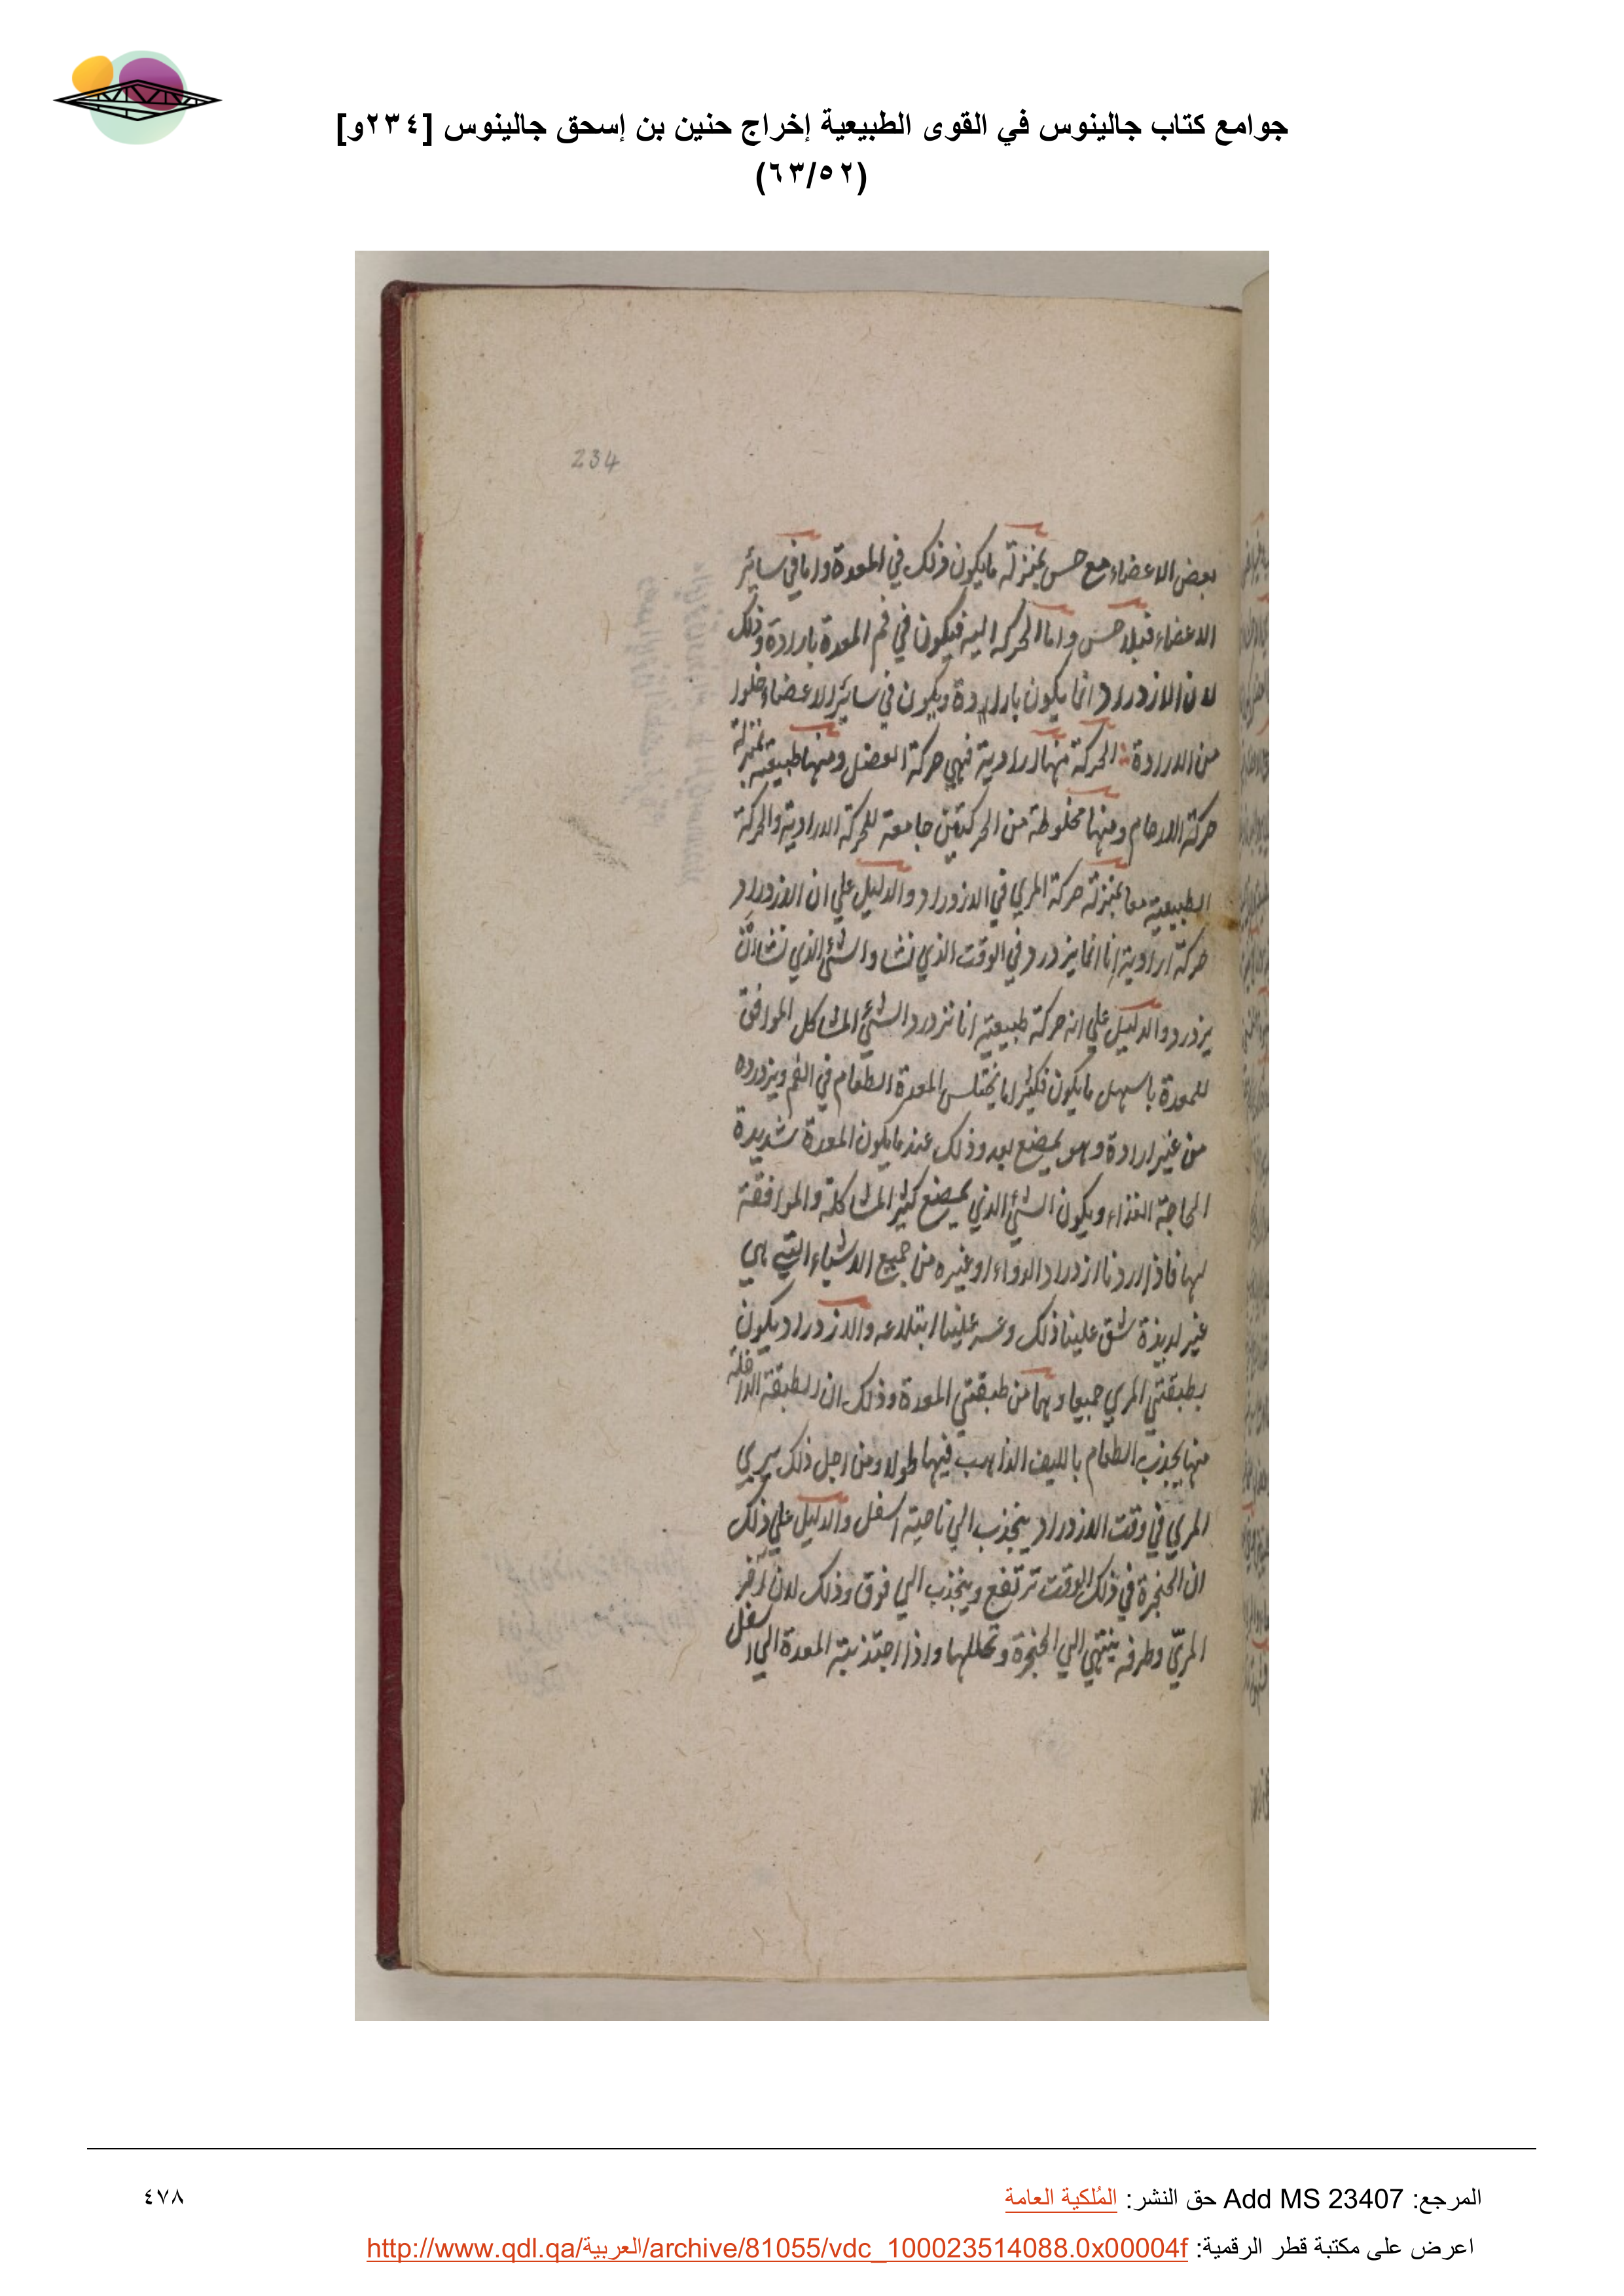 جوامع كتاب جالينوس في القوى الطبيعية إخراج حنين بن إسحق جالينوس [٢٣٤و]
(٦٣/٥٢)
234
بعض الاعضاء مع حس بمنزلة ما يكون ذلك في المعدة واما في سائر
الاعضاء فبلا حس واما الحركة اليه فيكون في فم المعدة بارادة وذلك
لان الازدراد انما يكون بارادة ويكون في سائر الاعضاء خلوا
من الارادة الحركة منها ارادية فهي حركة العضل ومنها طبيعية بمنزلة
حركة الارحام ومنها مخلوطة من الحركتين جامعة للحركة الارادية والحركة
الطبيعية معا بمنزلة حركة المري في الازدراد والدليل علي ان الازدراد
حركة ارادية انا انما يزدرد في الوقت الذي نشا والشئ الذي نشا ان
يزدرد والدليل علي انه حركة طبيعية انا نزدرد الشئ المشاكل الموافق
للمعدة باسهل ما يكون فكثيرا ما يختلس المعدة الطعام في الفم ويزدرده
من غير ارادة وهو يمضغ بعد وذلك عند ما يكون المعدة شديدة
الحاجة الغذاء ويكون الشئ الذي يمضغ كثير المشاكلة والموافقة
لها فاذا اردنا ازدراد الدواء او غيره من جميع الاشياء التي هي
غير لذيذة شق علينا ذلك وعسر علينا ابتلاعه والازدراد يكون
بطبقتي المري جميعا وهما من طبقتي المعدة وذلك ان الطبقة الداخلة
منها يجذب الطعام بالليف الذاهب فيها طولا ومن اجل ذلك يري
المري في وقت الازدراد ينجذب الي ناحية اسفل والدليل علي ذلك
ان الحنجرة في ذلك الوقت ترتفع وينجذب الي فوق وذلك لان آخر
المريّ وطرفه ينتهي الي الحنجرة واذا اجتذبته المعدة الي اسفل
المرجع: Add MS 23407 حق النشر: المُلكية العامة
٤٧٨
اعرض على مكتبة قطر الرقمية: http://www.qdl.qa/العربية/archive/81055/vdc_100023514088.0x00004f